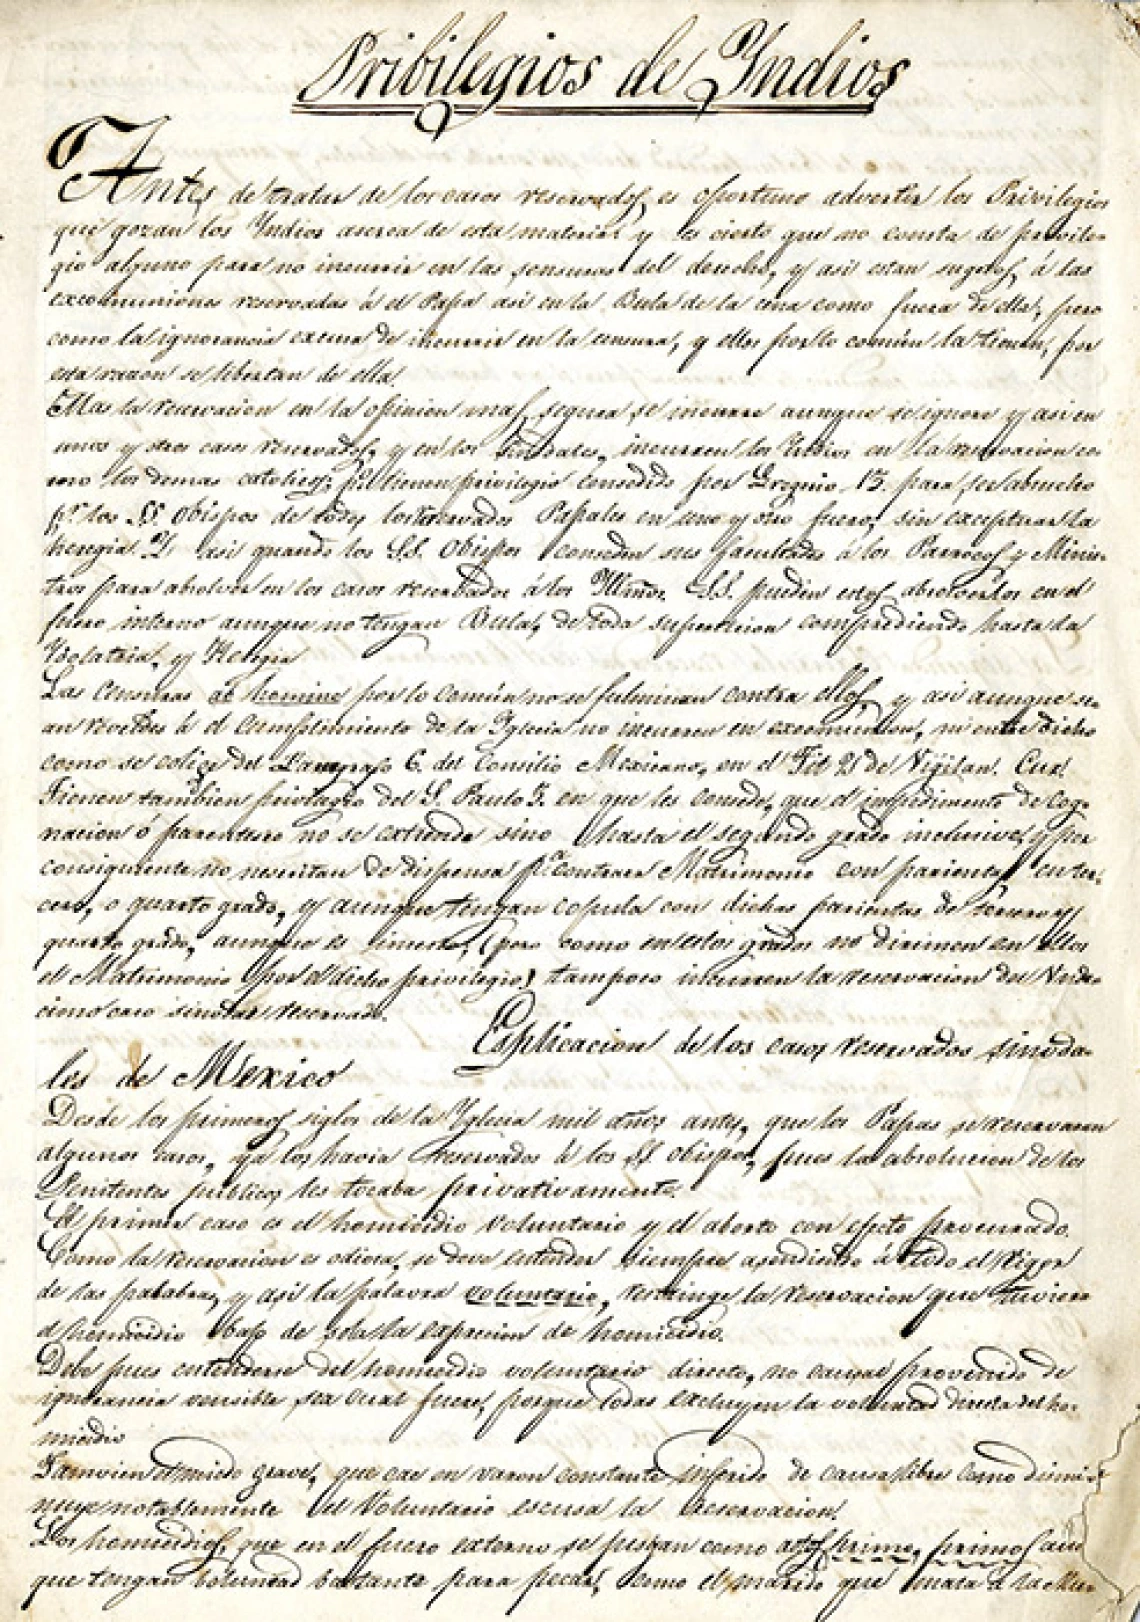 Pribilegios de Yndios
Antes de tratar de los casos reservados, es oportuno advertir los Privilegios
que gozan los Yndios aserca de esta materia, y es cierto que no consta de privile-
gio alguno para no incurrir en las sensuras del derecho, y asi estan sugetos á las
excomuniones reservadas á el Papa asi en la Bula de la cena como fuera de ella; pero
como la ignorancia escusa de incurrir en la censura, y ellos por lo común la tienen, por
esta razon se libertan de ella.
Mas la reservacion en la opinion mas segura, se incurre aunque se ignore y asi en
unos y otros casos reservados, y en los incurren los Yndios en la reservacion co-
mo los demas catolicos; tienen privilegio consedido por Gregorio 13. para ser absueltos
pr. los SS. Obispos de todos los reservados Papales en uno y otro fuero, sin exceptuar la
heregia. Y asi quando los SS. Obispos conseden sus facultades á los Parrocos y Minis-
tros para absolver en los casos reserbados á los Yllmos. SS. pueden estos absolverlos en el
fuero interno aunque no tengan Bula, de toda supersticion comprediendo hasta la
Ydolatria, y Heregia
Las Censuras ab homine por lo común no se fulminan contra ellos, y asi aunque se-
an reveldes á el cumplimiento de la Yglecia no incurren en excomunion, ni entre dicho
como se colige del Paragrafo 6. del Consilio Mexicano, en el Tit de Vigilan. Cur.
Tienen tambien privilegio del S. Paulo 3. en que les consede, que el impedimento de Cog-
nacion ó parentesco no se extiende sino hasta el segundo grado inclusive, y por
consiguiente no nesesitan de dispensa pa. contraer Matrimonio con parientes en ter-
cero, o quarto grado, y aunque tengan copula con dichas parientas de tercero y
quarto grado, aunque es insesto, (pero como en estos grados no dirimen en ellos
el Matrimonio por el dicho privilegio) tampoco incurren la reservacion del
caso sinodal reservado.
Esplicacion de los casos reservados sinoda-
les de Mexico
Desde los primeros siglos de la Yglecia mil años antes, que los Papas se reservaran
algunos casos, ya los havia reservados á los SS. obispos, pues la absolucion de los
Penitentes publicos les tocaba privativamente.
El primer caso es el homicidio voluntario y el aborto con efecto procurado.
Como la reservacion es odiosa, se deve entender siempre atendiendo á todo el rigor
de las palabras, y asi la palavra voluntario, restringe la reservacion que tuviera
el homicidio bajo de sola la exprecion de homicidio.
Debe pues entenderse del homicidio voluntario directo, no causal provenido de
ignorancia vensible sea cual fuere, porque todas excluyen la voluntad directa del ho-
micidio
Tamvien el miedo grave, que cae en varon constante inferido de causa libre como dismi-
nuye notablemente el Voluntario escusa la reservacion.
Los homicidios, que en el fuero externo se jusgan como actos primo, primos aun
que tengan voluntad bastante para pecar, como el marido que mata a la Mu-